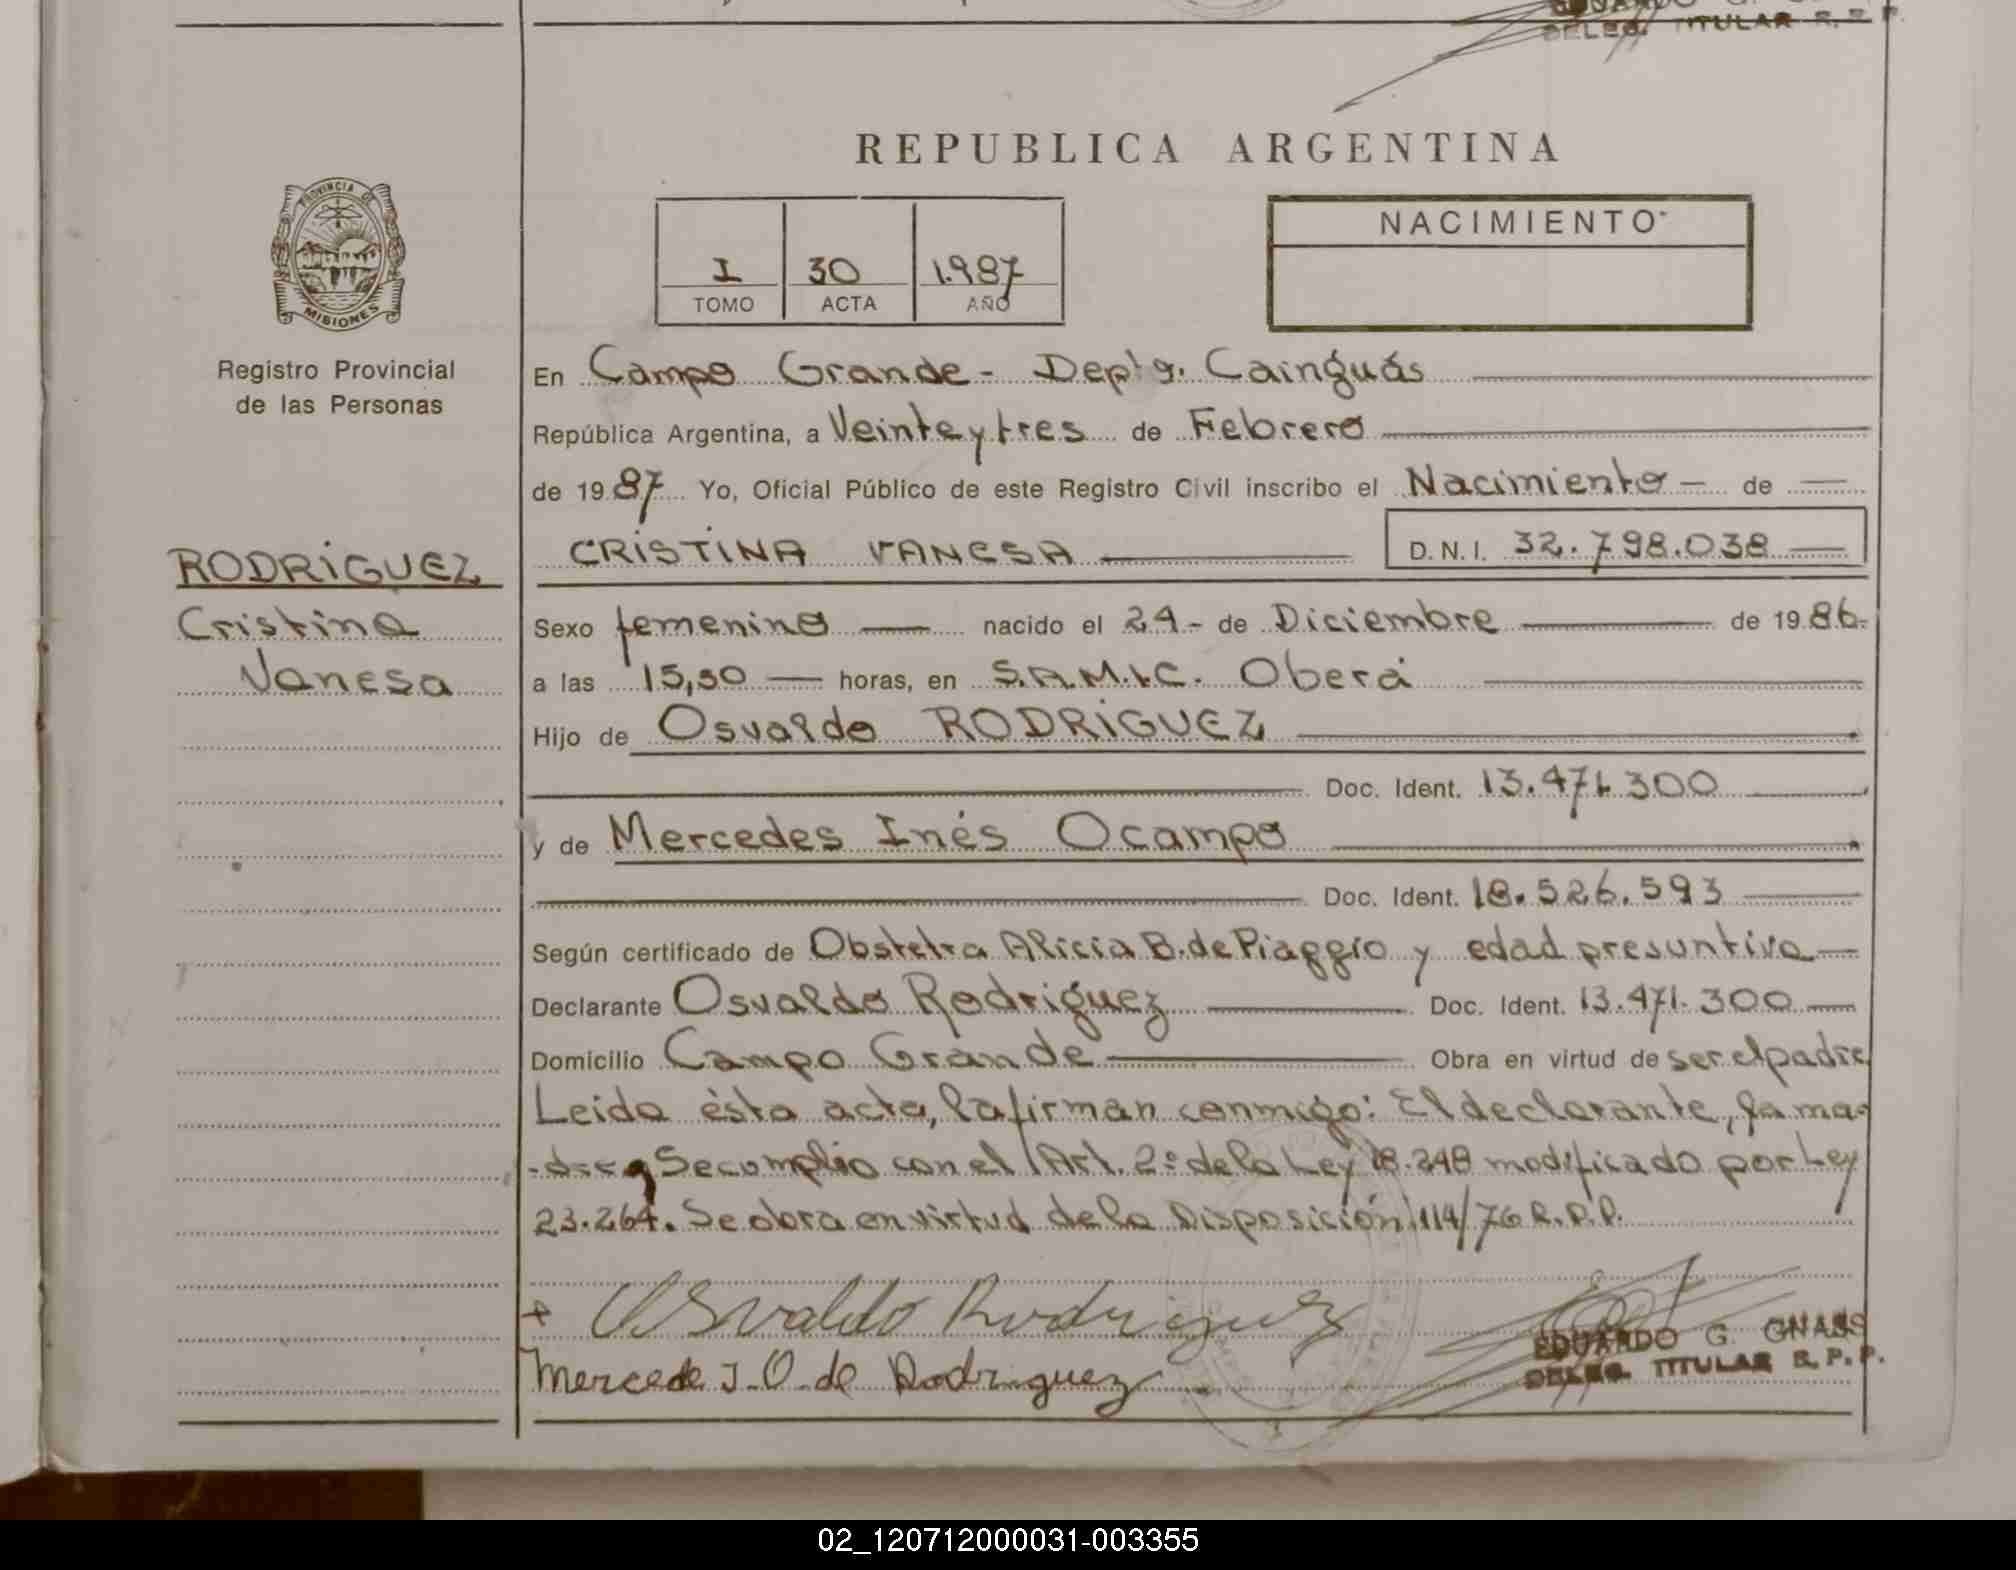 DELEG. TITULAR R. P. P.
REPUBLICA ARGENTINA
PROVINCIA DE
MISIONES
Registro Provincial
de las Personas
I 30 1.987
TOMO ACTA AÑO
NACIMIENTO
En Campo Grande - Depto. Cainguás
República Argentina, a Veinte y tres de Febrero
de 1987 Yo, Oficial Público de este Registro Civil inscribo el Nacimiento - de
CRISTINA VANESA D. N. I. 32.798.038
RODRIGUEZ
Cristina
Vanesa
Sexo femenino nacido el 24 - de Diciembre de 1986.
a las 15,30 horas, en S.A.M.I.C. Oberá
Hijo de Osvaldo RODRIGUEZ
Doc. Ident. 13.471.300
y de Mercedes Inés Ocampo
Doc. Ident. 18.526.593
Según certificado de Obstetra Alicia B. de Piaggio y edad presuntiva
Declarante Osvaldo Rodriguez Doc. Ident. 13.471.300
Domicilio Campo Grande Obra en virtud de ser el padre
Leida ésta acta, la firman conmigo: El declarante, la ma-
-dre, Se cumplio con el Art. 2º de la Ley 18.248 modificado por Ley
23.264. Se obra en virtud de la Disposición 114/76 R.P.P.
Osvaldo Rodriguez
Mercede I. O. de Rodriguez
EDUARDO G. GNASS
DELEG. TITULAR R. P. P.
02_120712000031-003355